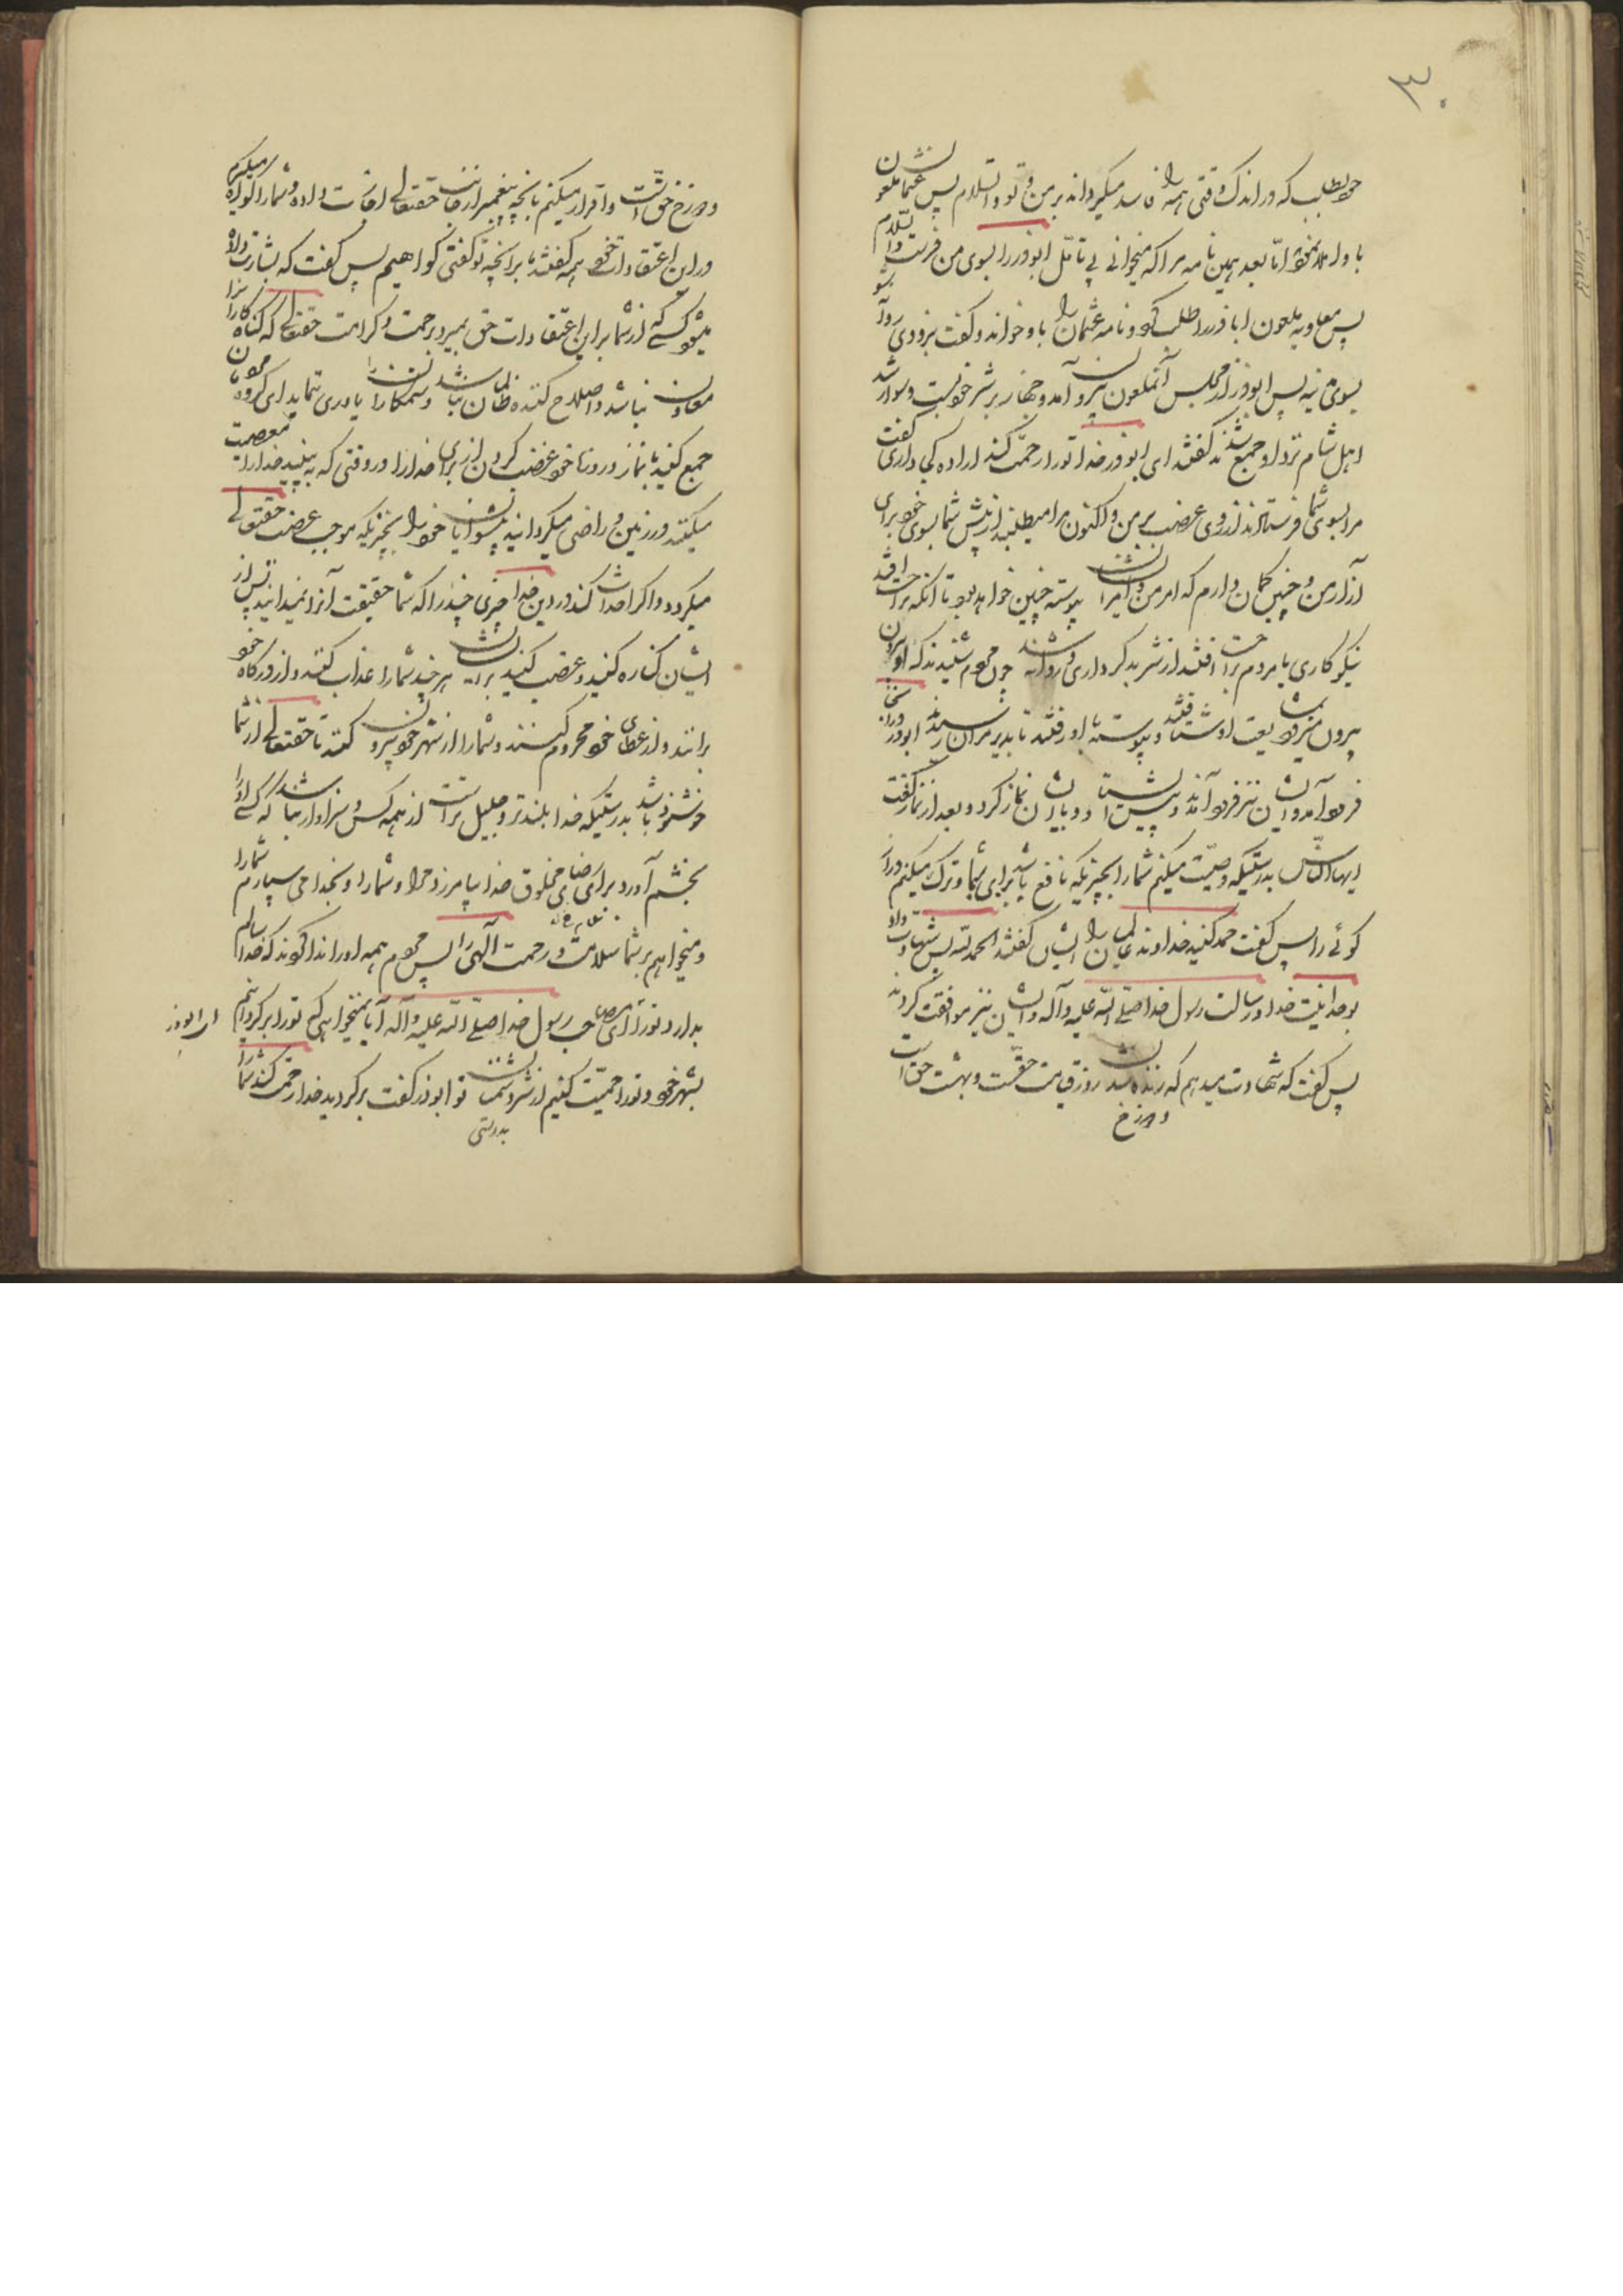 ۳۰
خود بطلب که در اندک وقتی همه را فاسد میگرداند بر من و تو والسلام پس عثمان ملعون
باو نامه نوشت اما بعد همین نامه مرا که میخوانی بی تأمل ابوذر را بسوی من فرست والسلام
پس معاویه ملعون اباذر را طلب کرد و نامه عثمان را باو خواند و گفت بزودی روانه شو
بسوی مدینه پس ابوذر از مجلس آنملعون بیرون آمد و جهاز بر شتر خود بست و سوار شد
اهل شام نزد او جمع شدند گفتند ای ابوذر خدا تو را رحمت کند اراده کجا داری گفت
مرا بسوی شما فرستادند از روی غضب بر من و اکنون مرا میطلبند از پیش شما بسوی خود برای
آزار من و چنین گمان دارم که امر من و امر ایشان پیوسته چنین خواهد بود تا آنکه براحت افتد
نیکوکاری یا مردم براحت افتند از شر بدکرداری و روانه شد چون مردم شنیدند که او بیرون
بیرون میرود بمشایعت او شتافتند و پیوسته با او رفتند تا بدیر مران رسیدند ابوذر در انجا
فرود آمد و ایشان نیز فرود آمدند و پیش ایستاد و با ایشان نماز کرد و بعد از نماز گفت
ایها الناس بدرستیکه وصیت میکنم شما را بچیزیکه نافع باشد برای شما و ترک میکنم دراز
گوئی را پس گفت حمد کنید خداوند عالمیان را ایشان گفتند الحمد لله پس شهادت داد
بوحدانیت خدا و رسالت رسول خدا صلی الله علیه و آله و ایشان نیز موافقت کردند
پس گفت که شهادت میدهم که زنده شدن روز قیامت حقست و بهشت حق است
و دوزخ
و دوزخ حق است و اقرار میکنم بانچه پیغمبر از جانب حقتعالی آورده و شما را گواه میگیرم
در این اعتقادات خود همه گفتند ما بر انچه تو گفتی گواهیم پس گفت که بشارت داده
میشود کسی که از شما بر این اعتقادات حق بمیرد برحمت و کرامت حقتعالی که گناه کاران را
معاون نباشد و اصلاح کننده ظالمان نباشد و ستمکاران را یاوری ننماید ای گروه مردمان
جمع کنید با نماز و روزه خود غضب کردن از برای خدا را در وقتی که به بینید خدا را معصیت
میکنند در زمین و راضی میگردانید پیشوایان خود را بچیزیکه موجب غضب حقتعالی
میگردد و اگر احداث کنند در دین خدا چیزی چند را که شما حقیقت آنرا نمیدانید پس از
ایشان کناره کنید و غضب کنید بر ایشان هر چند شما را عذاب کنند و از درگاه خود
برانند و از عطای خود محروم کنند و شما را از شهر خود بیرون کنند تا حقتعالی از شما
خوشنود باشد بدرستیکه خدا بلندتر و جلیل تر است از همه کس و سزاوار نباشد که کسی او را
بخشم آورد برای رضای مخلوق خدا بیامرزد مرا و شما را و بخدا می سپارم شما را
و میخواهم بر شما سلامت و رحمت الهی را پس مردم همه او را ندا کردند که خدا سالم
بدارد تو را ای مصاحب رسول خدا صلی الله علیه و آله آیا نمیخواهی که تو را برگردانیم
ای ابوذر
بشهر خود و تو را حمایت کنیم از شر دشمنان تو ابوذر گفت برگردید خدا رحمت کند شما را
بدرستی